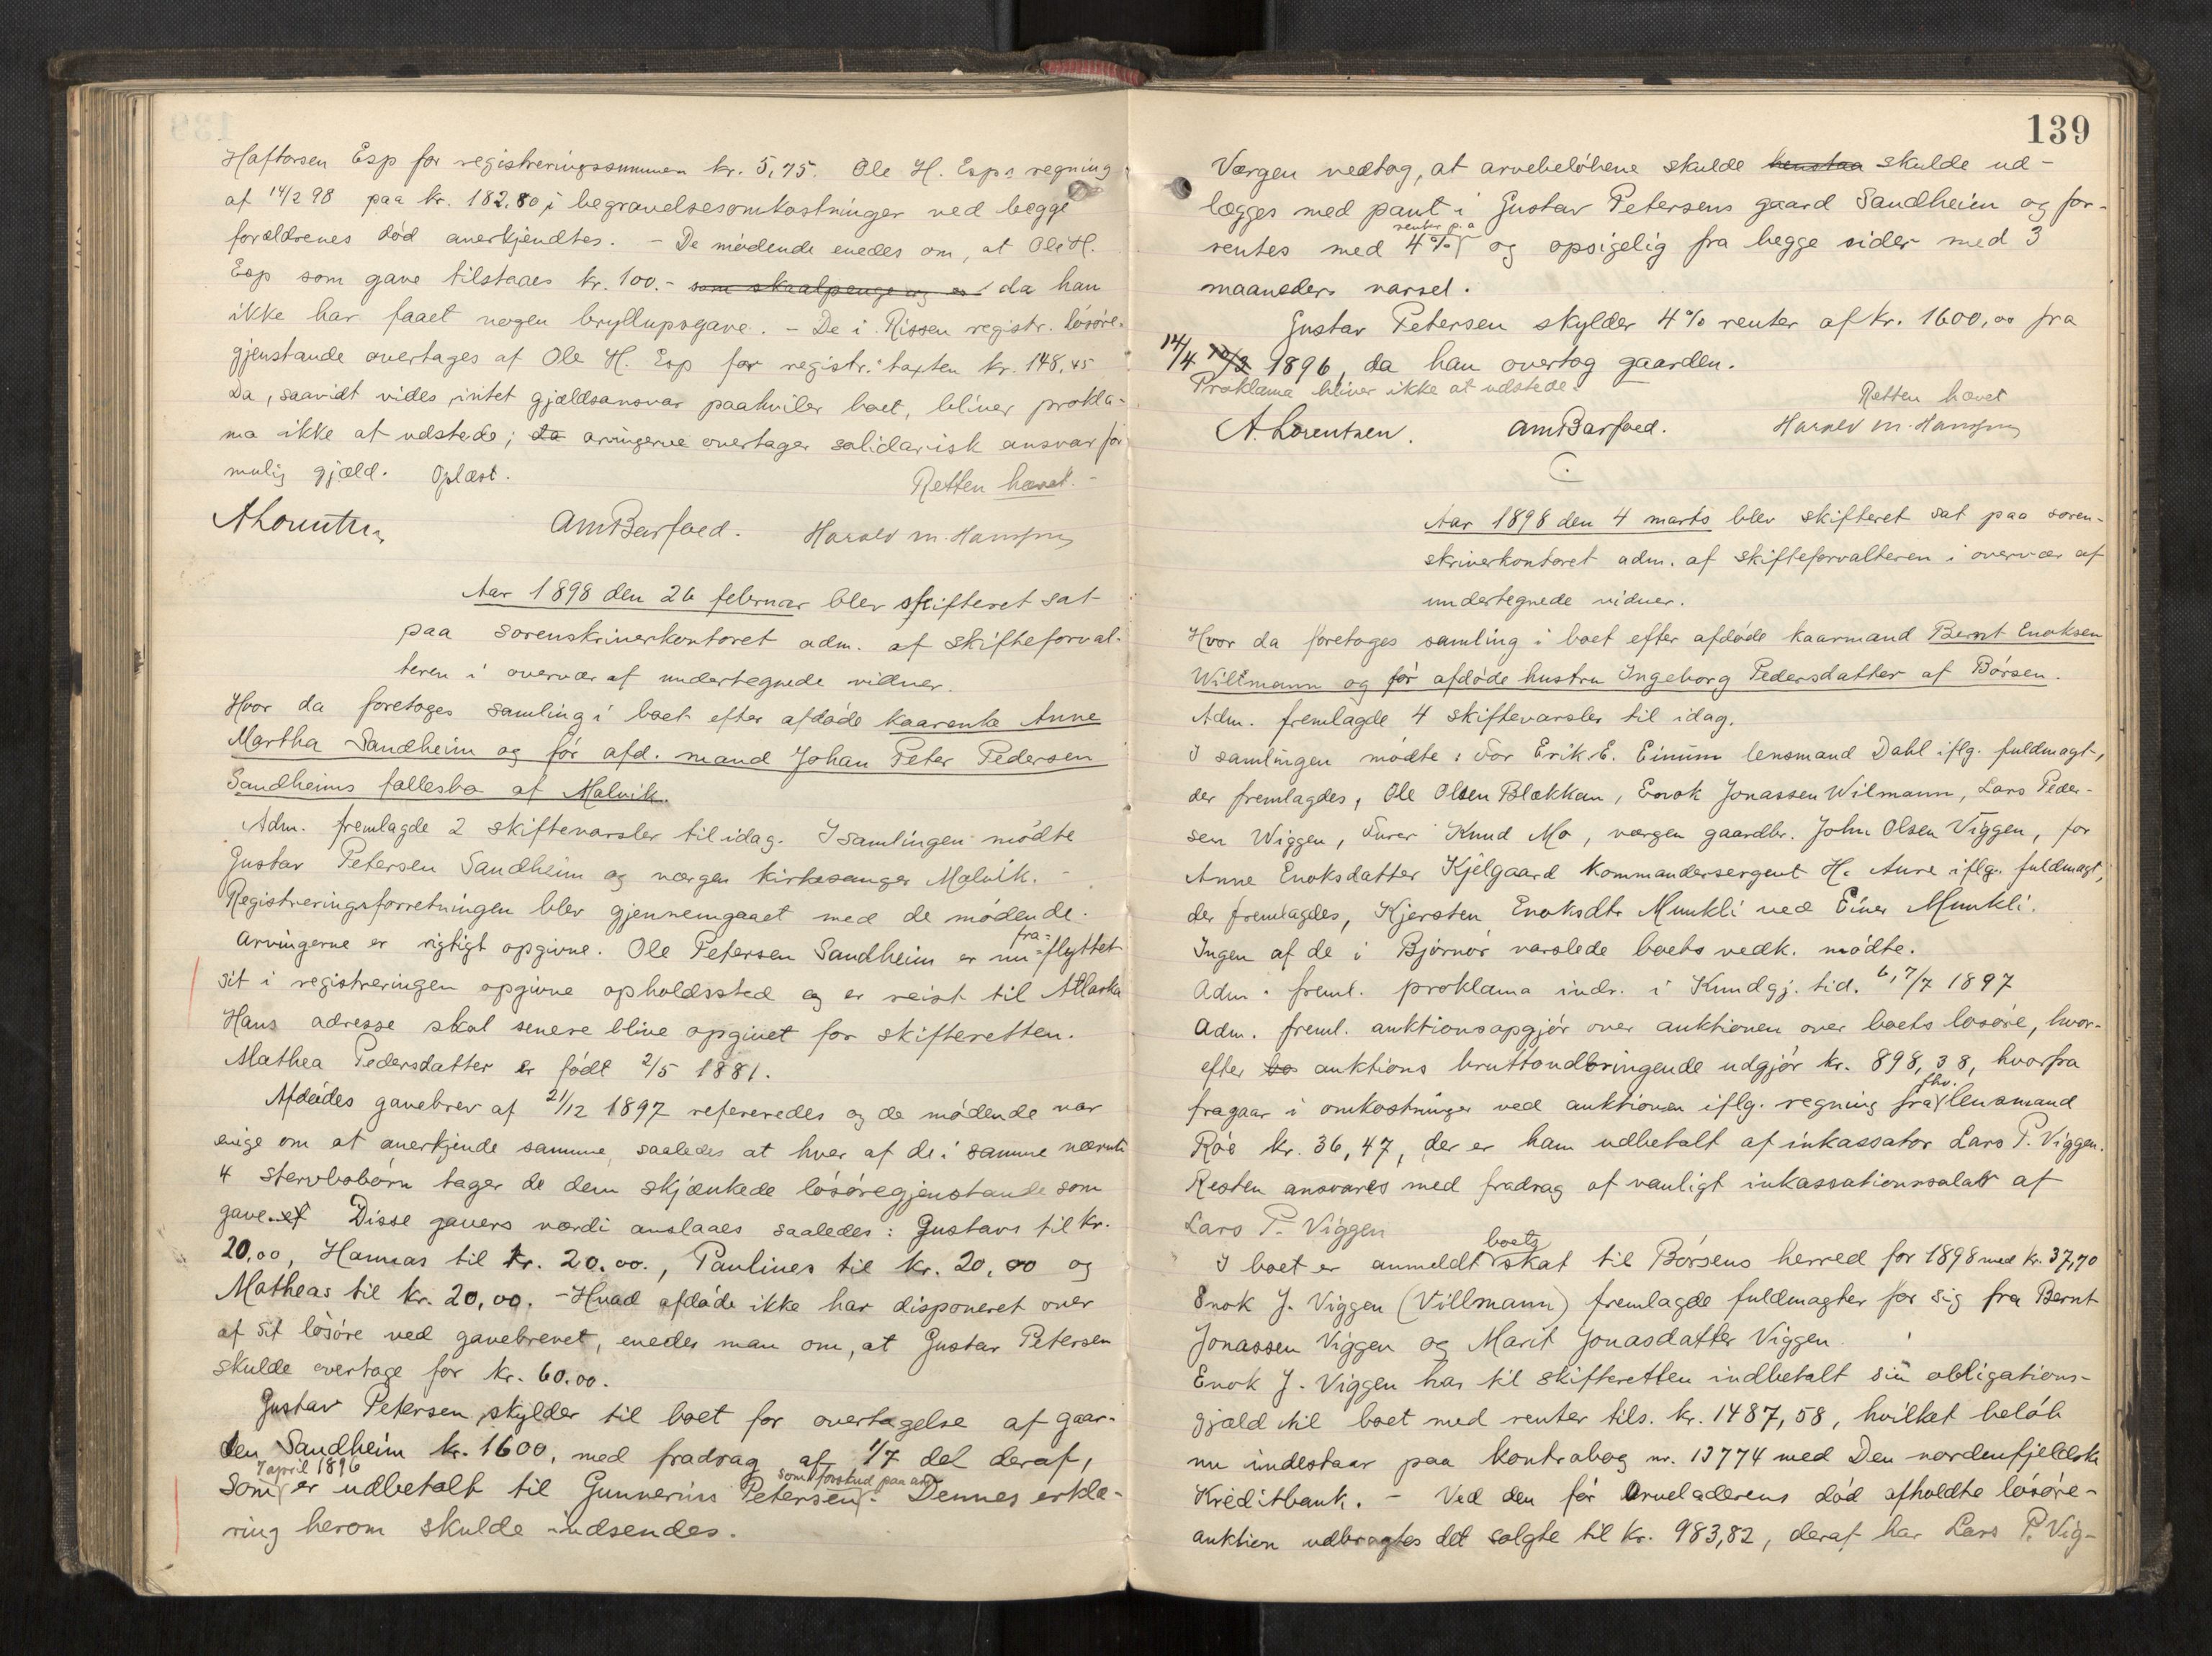 Haftorsen Esp for registreringssummen kr. 5,75. Ole H. Esps regning
af 14/2 98 paa kr. 182.80 i begravelsesomkostninger ved begge
forældrenes död anerkjendtes. - De mödende enedes om, at Ole H.
Esp som gave tilstaaes kr. 100.- som skaalpenge og er da han
ikke har faaet nogen bryllupsgave. - De i Rissen registr. lösöre-
gjenstande overtages af Ole H. Esp for registr. taxten kr. 148,45
Da, saavidt vides, intet gjældsansvar paahviler boet, bliver prokla-
ma ikke at udstede; da arvingerne overtager solidarisk ansvar for
mulig gjæld. Oplæst.
Retten hævet. -
A Lorentzen AmBarfoed. Harald M. Hansen
Aar 1898 den 26 februar blev skifteret sat
paa sorenskriverkontoret adm. af skifteforval-
teren i overvær af undertegnede vidner.
Hvor da foretoges samling i boet efter afdöde kaarenke Anne
Martha Sandheim og för afd. mand Johan Peter Pedersen
Sandheims fællesbo af Malvik.
Adm. fremlagde 2 skiftevarsler til idag. I samlingen mödte
Gustav Petersen Sandheim og værgen kirkesanger Malvik. -
Registreringsforretningen blev gjennemgaaet med de mödende.
Arvingerne er rigtigt opgivne. Ole Petersen Sandheim er nu fra-flyttet
sit i registreringen opgivne opholdssted og er reist til Atlarka
Hans adresse skal senere blive opgivet for skifteretten.
Mathea Pedersdatter er födt 2/5 1881.
Afdödes gavebrev af 21/12 1897 refereredes og de mödende var
enige om at anerkjende samme, saaledes at hver af de i samme nævnte
4 stervbobörn tager de dem skjænkede lösöregjenstande som
gave. Disse gavers værdi anslaaes saaledes: Gustavs til kr.
20.00, Hannas til kr. 20.00., Paulines til kr. 20,00 og
Matheas til kr. 20,00. - Hvad afdöde ikke har disponeret over
af sit lösöre ved gavebrevet, enedes man om, at Gustav Petersen
skulde overtage for kr. 60.00.
Gustav Petersen skylder til boet for overtagelse af gaar-
den Sandheim kr. 1600, med fradrag af 1/7 del deraf,
7 april 1896 som forskud paa arv
som er udbetalt til Gunnerius Petersen. Dennes erklæ-
ring herom skulde indsendes.
139
Værgen vedtog, at arvebelöbene skulde henstaa skulde ud-
lægges med pant i Gustav Petersens gaard Sandheim og for-
renter p.a
rentes med 4% og opsigelig fra begge sider med 3
maaneders varsel.
Gustav Petersen skylder 4% renter af kr. 1600,00 fra
14/4 1896, da han overtog gaarden.
Proklama bliver ikke at udstede.
Retten hævet
A. Lorentzen. AmBarfoed. Harald M. Hansen
Aar 1898 den 4 marts blev skifteret sat paa soren-
skriverkontoret adm. af skifteforvalteren i overvær af
undertegnede vidner.
Hvor da foretoges samling i boet efter afdöde kaarmand Bernt Enoksen
Willmann og för afdöde hustru Ingeborg Pedersdatter af Börsen.
Adm. fremlagde 4 skiftevarsler til idag.
I samlingen mödte: For Erik E. Einum lensmand Dahl iflg. fuldmagt,
der fremlagdes, Ole Olsen Blækkan, Enok Jonassen Wilmann, Lars Peder-
sen Wiggen, Knud Mo, værgen gaardbr. John Olsen Viggen, for
Anne Enoksdatter Kjelgaard kommandersergent H. Aune iflg. fuldmagt,
der fremlagdes, Kjersten Enoksdtr Munkli ved Einer Munkli.
Ingen af de i Björnör varslede boets vedk. mödte.
Adm. freml. proklama indr. i Kundgj. tid. 6, 7/7 1897
Adm. freml. auktionsopgjör over auktionen over boets lösöre, hvor-
efter bo auktions bruttoudbringende udgjör kr. 898,38, hvorfra
fhv.
fragaar i omkostninger ved auktionen iflg. regning fra lensmand
Röe kr. 36,47, der er ham udbetalt af inkassator Lars P. Viggen.
Resten ansvares med fradrag af vanligt inkassationssalær af
Lars P. Viggen
boets
I boet er anmeldt skat til Börsens herred for 1898 med kr. 37,70
Enok J. Viggen (Villmann) fremlagde fuldmagter for sig fra Bernt
Jonassen Viggen og Marit Jonasdatter Viggen.
Enok J. Viggen har til skifteretten indbetalt sin obligations-
gjæld til boet med renter tils. kr. 1487,58, hvilket belöb
nu indestaar paa kontrabog nr. 13774 med Den nordenfjeldske
Kreditbank. - Ved den för arveladerens död afholdte lösöre-
auktion udbragtes det solgte til kr. 983,82, deraf har Lars P. Vig-